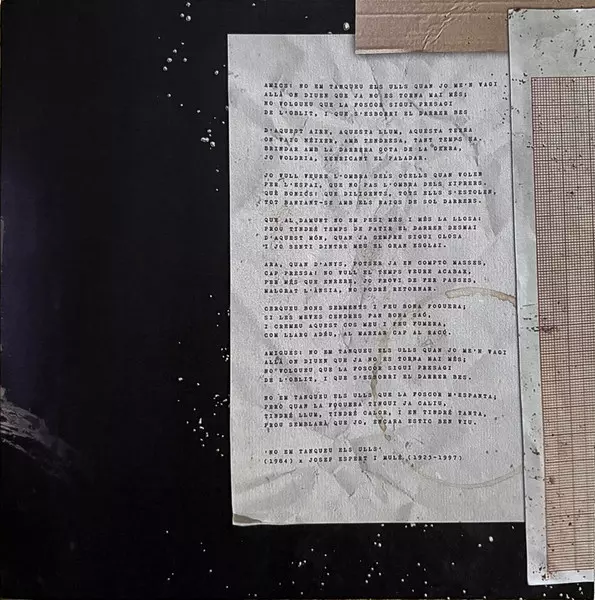 AMICS: NO EM TANQUEU ELS ULLS QUAN JO ME'N VAGI
ALLÀ ON DIUEN QUE JA NO ES TORNA MAI MÉS;
NO VOLGUEU QUE LA FOSCOR SIGUI PRESAGI
DE L'OBLIT, I QUE S'ESBORRI EL DARRER BES
D'AQUEST AIRE, AQUESTA LLUM, AQUESTA TERRA
ON VAIG NÉIXER, AMB TENDRESA, TANT TEMPS HA.
BRINDAR AMB LA DARRERA GOTA DE LA
JO VOLDRIA, LUBRICANT EL PALADAR.
JO VULL VEURE L'OMBRA DELS OCELLS QUAN VOLEN
PER L'ESPAI, QUE NO PAS L'OMBRA DELS XIPRERS.
QUE BONICS! QUE DILIGENTS, TOTS ELLS S'ESTOLEN,
TOT BANYANT-SE AMB ELS RAIGS DE SOL DARRERS.
QUE AL DAMUNT NO EM PESI MÉS I MÉS LA LLOSA:
PROU TINDRÉ TEMPS DE PATIR EL DARRER DESMAI
D'AQUEST MÓN, QUAN JA SEMPRE SIGUI CLOSA
I JO SENTI DINTRE MEU EL GRAN ESGLAI.
ARA, QUAN D'ANYS, POTSER JA EN COMPTO MASSES,
CAP PRESSA: NO VULL EL TEMPS VEURE ACABAR,
FER MÉS QUE ENRERE, JO PROVI DE FER
MALGRAT L'ÀNSIA, NO PODRÉ RETORNAR.
CERQUEU BONS SERMENTS I FEU BONA FOGUERA;
SI LES MEVES CENDRES FAN BONA SAÓ,
I CREMEU AQUEST COS MEU I FEU FUMERA,
COM LLARG ADÉU, AL MARXAR CAP AL RACÓ.
AMIGUES: NO EM TANQUEU ELS ULLS QUAN JO ME'N VAGI
ALLÀ ON DIUEN QUE JA NO ES TORNA MAI MÉS;
NO VOLGUEU QUE LA FOSCOR SIGUI PRESAGI
DE L'OBLIT, I QUE S'ESBORRI EL DARRER BES.
NO EM TANQUEU ELS ULLS QUE LA FOSCOR M'ESPANTA;
PERÒ QUAN LA FOGUERA TINGUI JA CALIU,
TINDRÉ LLUM, TINDRÉ CALOR, I EN TINDRÉ TANTA,
PROU SEMBLARÀ QUE JO, ENCARA ESTIC BEN VIU.
'NO EM TANQUEU ELS ULLS'
(1984) x JOSEP ESPERT I MULÉ (1923-1997)